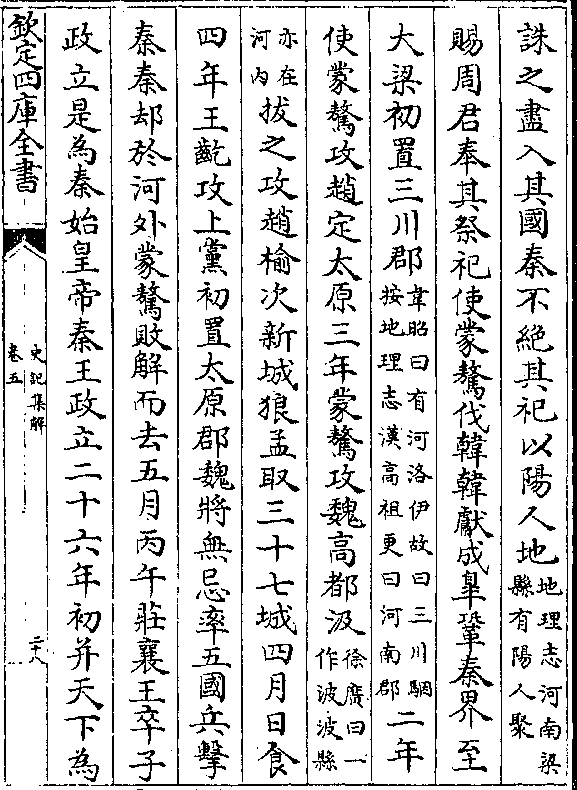 誅之盡入其國秦不絕其祀以陽人地地理志河南梁縣有陽人聚
賜周君奉其祭祀使蒙驁伐韓韓獻成臯鞏秦界至
大梁初置三川郡韋昭曰有河洛伊故曰三川駰按地理志漢高祖更曰河南郡二年
使蒙驁攻趙定太原三年蒙驁攻魏高都汲徐廣曰一作波波縣
亦在河內拔之攻趙榆次新城狼孟取三十七城四月日食
四年王齕攻上黨初置太原郡魏將無忌率五國兵擊
秦秦却於河外蒙驁敗解而去五月丙午莊襄王卒子
政立是為秦始皇帝秦王政立二十六年初并天下為
欽定四庫全書
史記集解
卷五
二十八